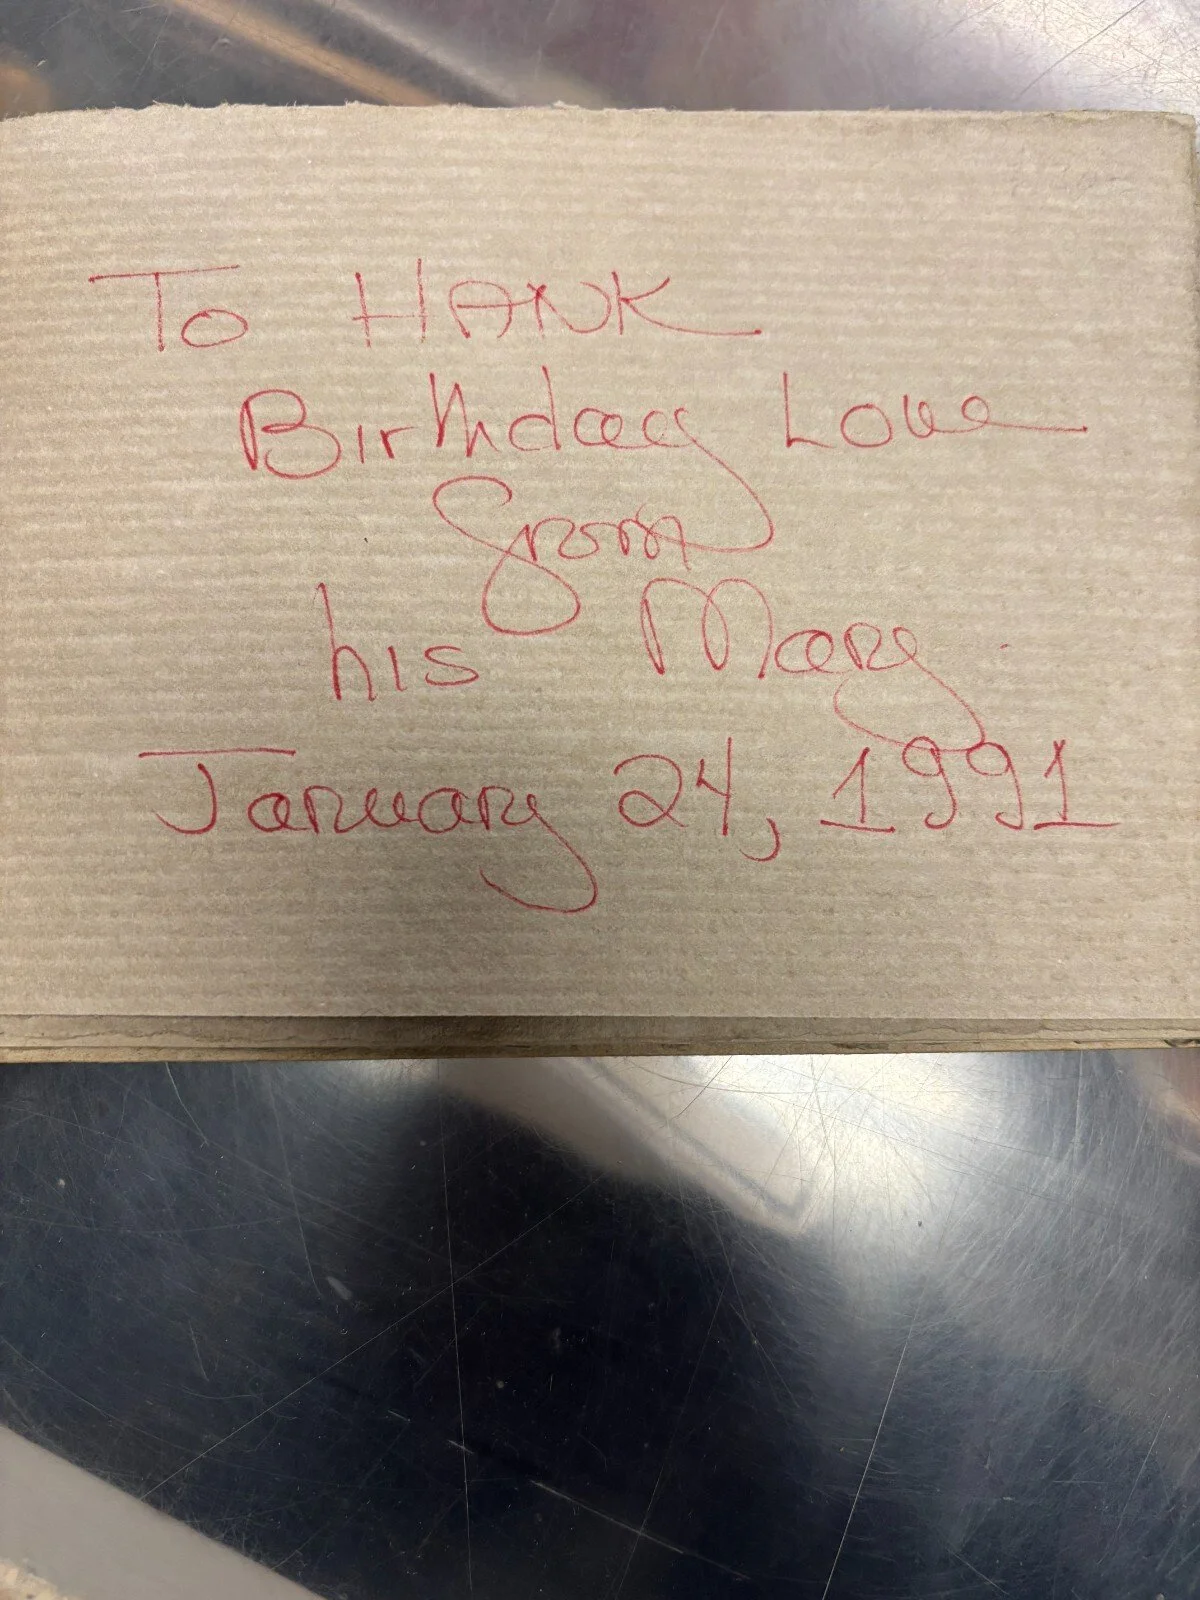 To HANK
Birthday Love
from
his Mary.
January 24, 1991